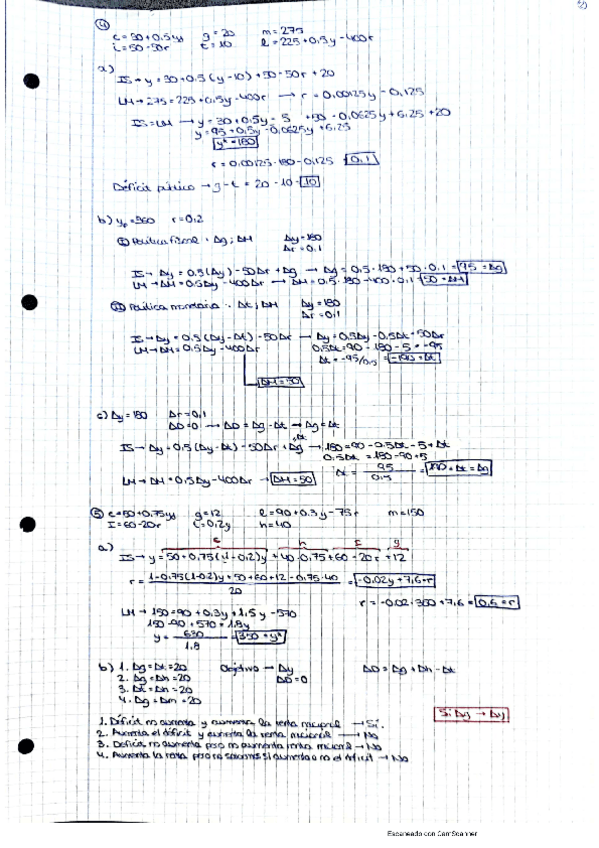 ④
c = 30 + 0,5yd g = 20 m = 275
i = 50 - 50r t = 10 l = 225 + 0,5y - 400r
a)
IS → y = 30 + 0,5(y - 10) + 50 - 50r + 20
LM → 275 = 225 + 0,5y - 400r → r = 0,00125y - 0,125
IS = LM → y = 30 + 0,5y - 5 + 50 - 0,0625y + 6,25 + 20
y = 95 + 0,5y - 0,0625y + 6,25
y* = 180
r = 0,00125 · 180 - 0,125 = 0,1
Déficit público → g - t = 20 - 10 = 10
b) yp = 360 r = 0,2
① Política fiscal: Δg; ΔM Δy = 180
Δr = 0,1
IS → Δy = 0,5(Δy) - 50Δr + Δg → Δg = 0,5 · 180 + 50 · 0,1 = 95 = Δg
LM → ΔM = 0,5Δy - 400Δr → ΔM = 0,5 · 180 - 400 · 0,1 = 50 = ΔM
② Política monetaria: Δt; ΔM Δy = 180
Δr = 0,1
IS → Δy = 0,5(Δy - Δt) - 50Δr → Δy = 0,5Δy - 0,5Δt - 50Δr
LM → ΔM = 0,5Δy - 400Δr 0,5Δt = 90 - 180 - 5 = -95
Δt = -95/0,5 = -190 = Δt
ΔM = 50
c) Δy = 180 Δr = 0,1
ΔD = 0 → ΔD = Δg - Δt → Δg = Δt
Δt
IS → Δy = 0,5(Δy - Δt) - 50Δr + Δg → 180 = 90 - 0,5Δt - 5 + Δt
0,5Δt = 180 - 90 + 5
LM → ΔM = 0,5Δy - 400Δr → ΔM = 50 Δt = 95/0,5 = 190 = Δt = Δg
⑤ c = 50 + 0,75yd g = 12 l = 90 + 0,3y - 75r m = 150
I = 60 - 20r t = 0,2y h = 40
a)
IS → y = 50 + 0,75(1 - 0,2)y + 40 · 0,75 + 60 - 20r + 12
r = 1 - 0,75(1 - 0,2)y + 50 + 60 + 12 - 0,75 · 40 / 20 = -0,02y + 7,6 = r
r = -0,02 · 350 + 7,6 = 0,6 = r
LM → 150 = 90 + 0,3y + 1,5y - 570
150 - 90 + 570 = 1,8y
y = 630/1,8 = 350 = y*
b) 1. Δg = Δt = 20 Objetivo → Δy ΔD = Δg + Δh - Δt
2. Δg = Δh = 20 ΔD = 0
3. Δt = Δh = 20
4. Δg = Δm = 20
Si Δg → Δy
1. Déficit no aumenta y aumenta la renta nacional → Sí.
2. Aumenta el déficit y aumenta la renta nacional → No
3. Déficit no aumenta pero no aumenta renta nacional → No
4. Aumenta la renta pero no sabemos si aumenta o no el déficit → No
Escaneado con CamScanner